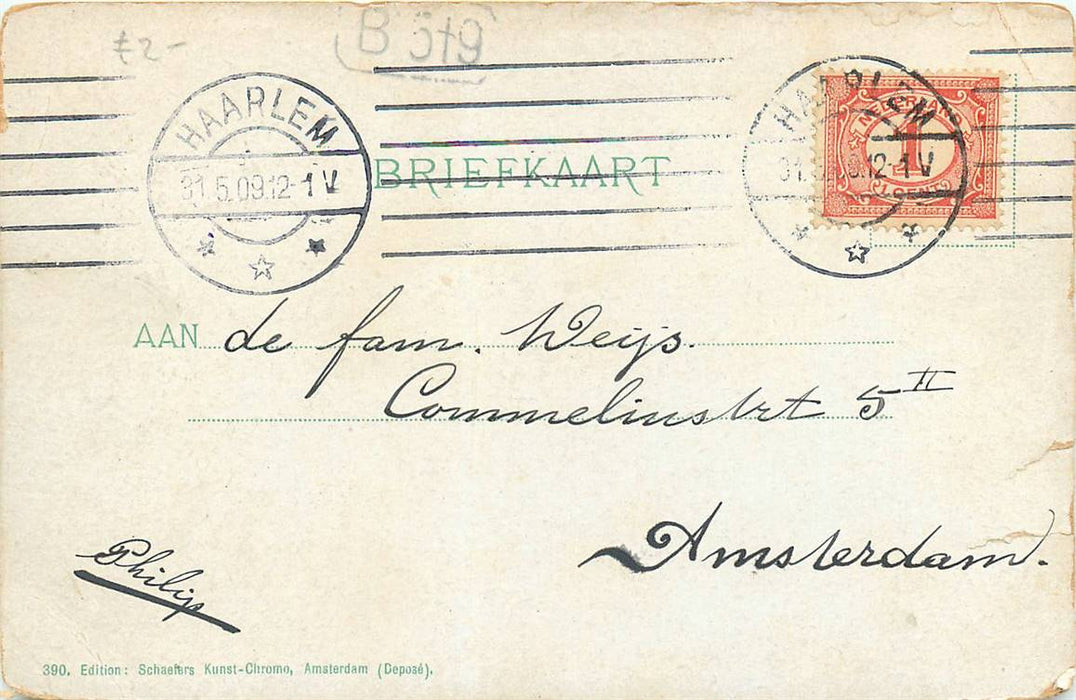 £2-
HAARLEM
31.5.09.12-1 V
BRIEFKAART
HAARLEM
12-1 V
NEDERLAND
1
1 CENT
AAN de fam. Weijs.
Commelinstrt 5 II
Amsterdam.
Philip
390. Edition: Schaefers Kunst-Chromo, Amsterdam (Deposé).